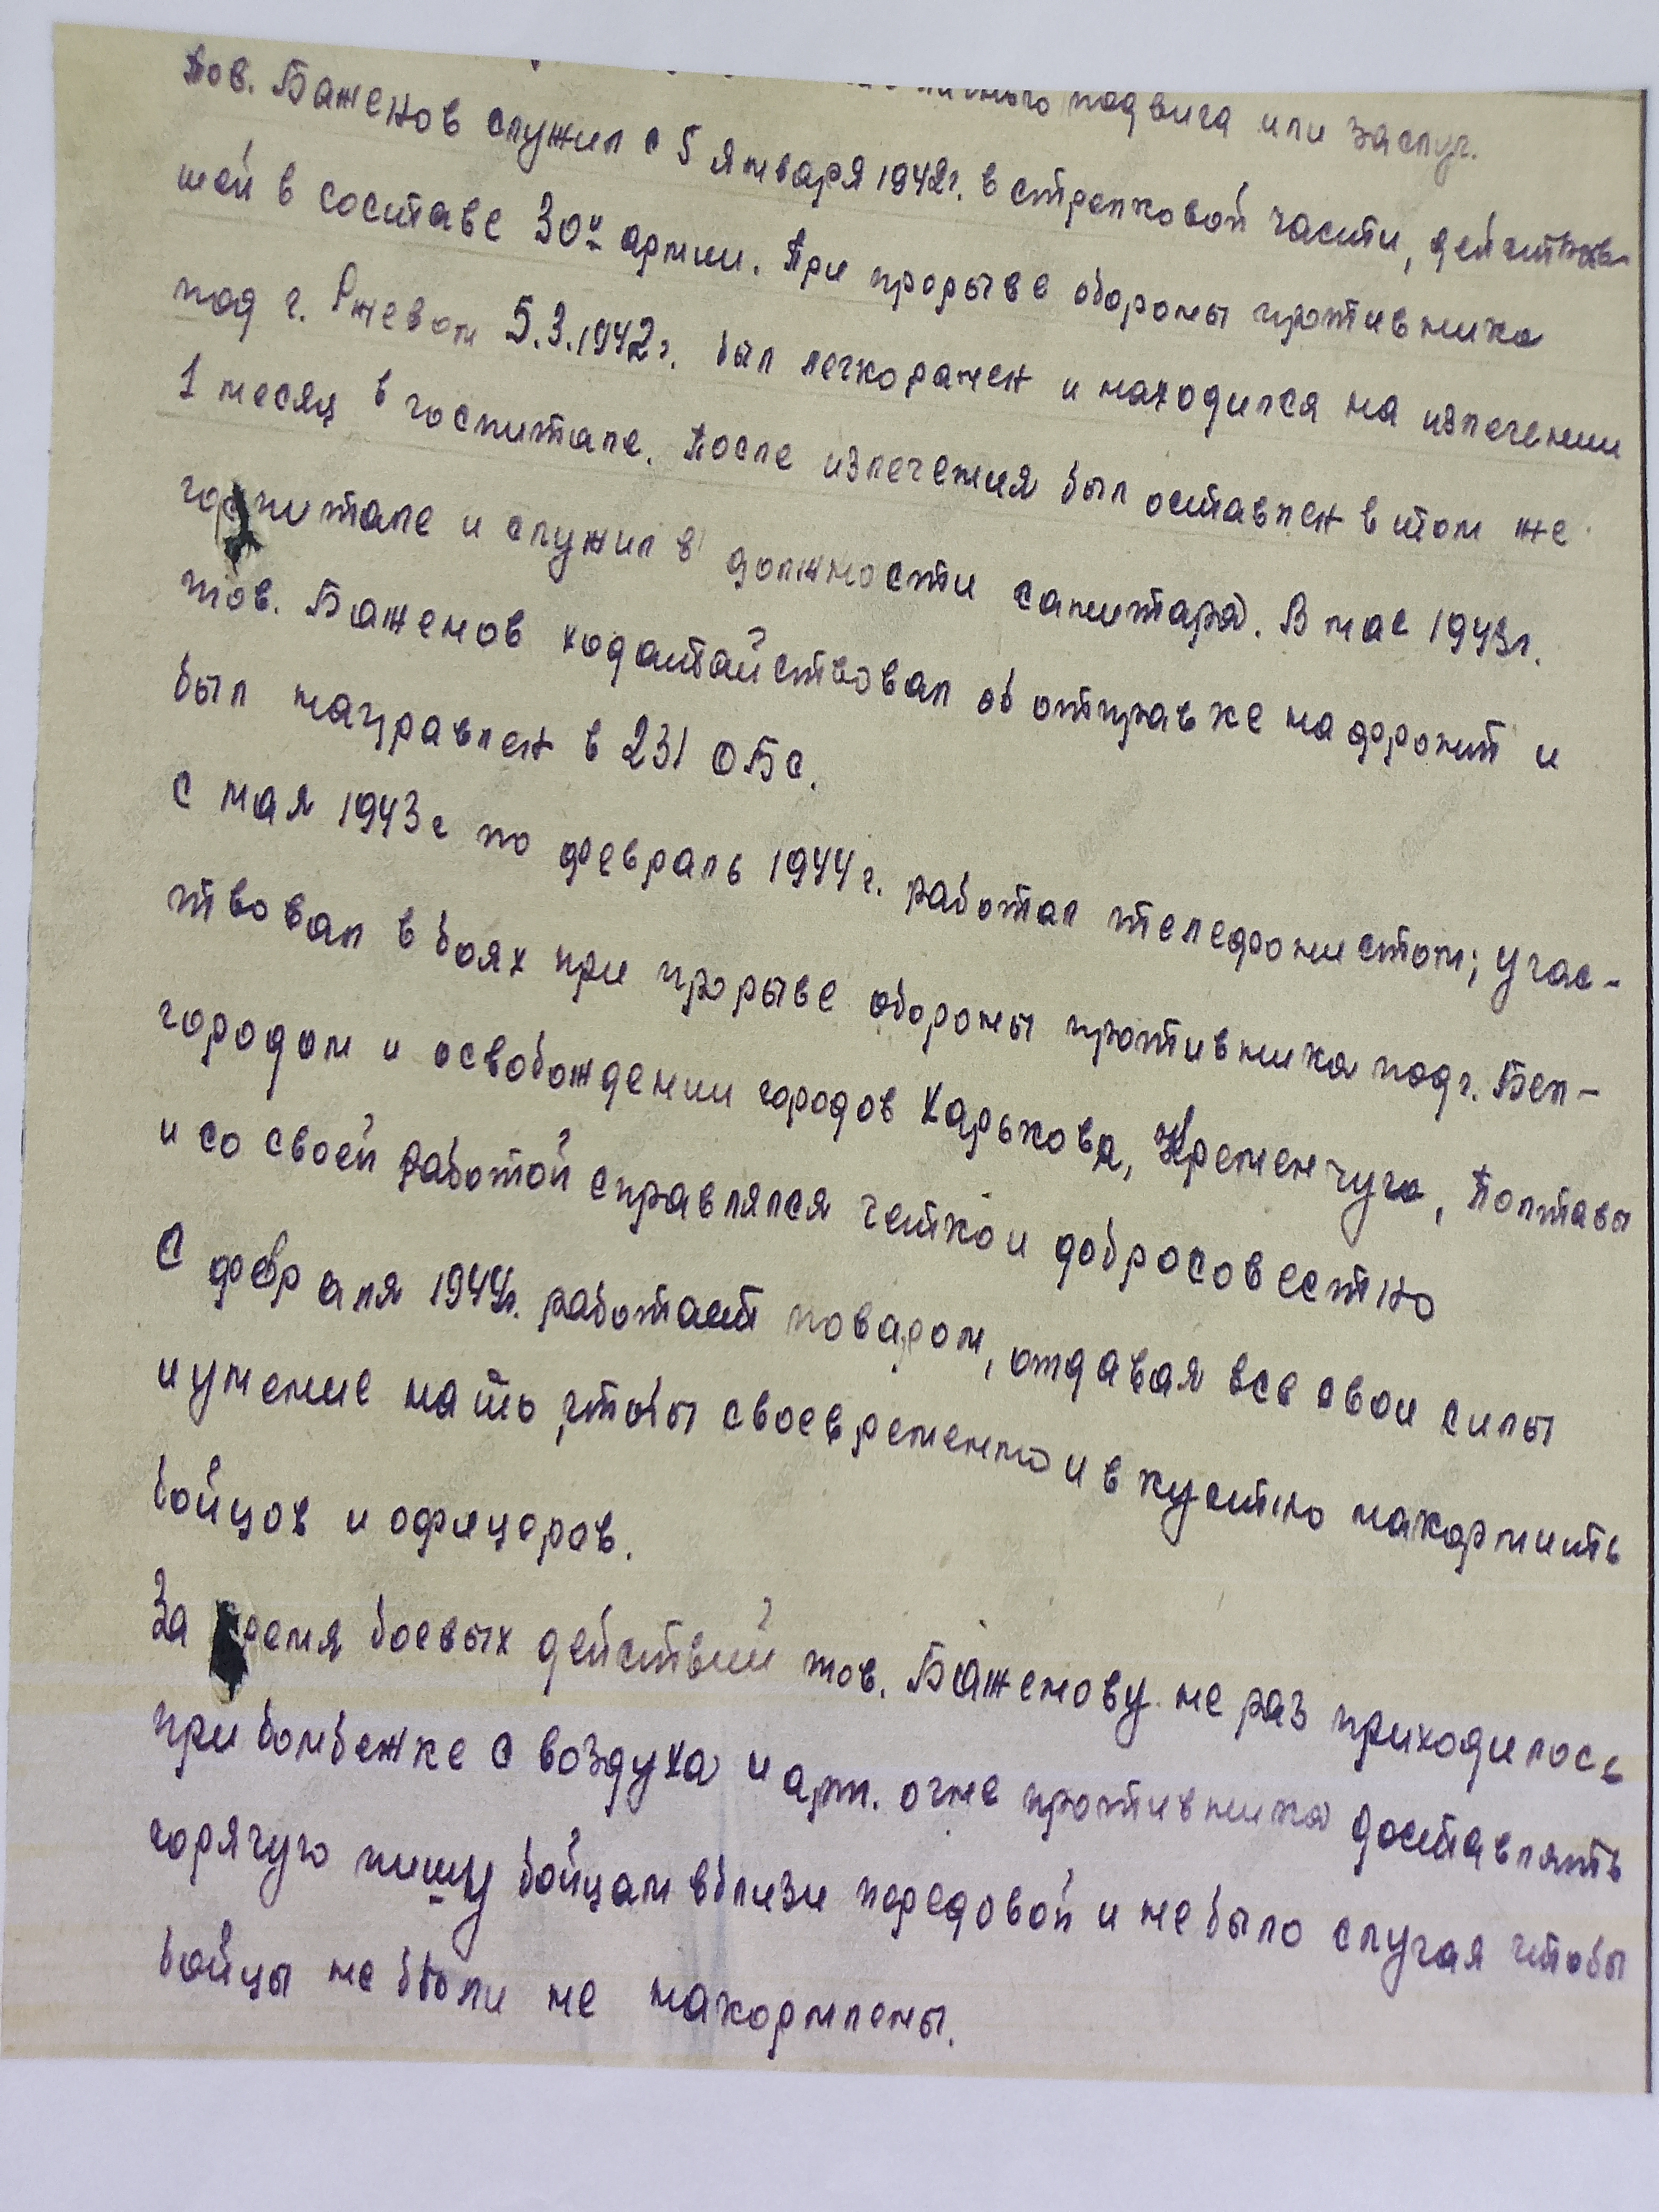 личного подвига или заслуг.
Тов. Баженов служил с 5 января 1942г. в стрелковой части, действовав-
шей в составе 30й армии. При прорыве обороны противника
под г. Ржевом 5.3.1942г. был легко ранен и находился на излечении
1 месяц в госпитале. После излечения был оставлен в том же
госпитале и служил в должности санитара. В мае 1943г.
тов. Баженов ходатайствовал об отправке на фронт и
был направлен в 231 ОБС.
С мая 1943г по февраль 1944г. работал телефонистом; учас-
твовал в боях при прорыве обороны противника под г. Бел-
городом и освобождении городов Харькова, Кременчуга, Полтавы
и со своей работой справлялся четко и добросовестно
С февраля 1944г. работает поваром, отдавая все свои силы
и умение на то, чтобы своевременно и вкустно накормить
бойцов и офицеров.
За время боевых действий тов. Баженову не раз приходилось
при бомбежке с воздуха и арт. огне противника доставлять
горячую пищу бойцам вблизи передовой и не было случая чтобы
бойцы не были не накормлены.